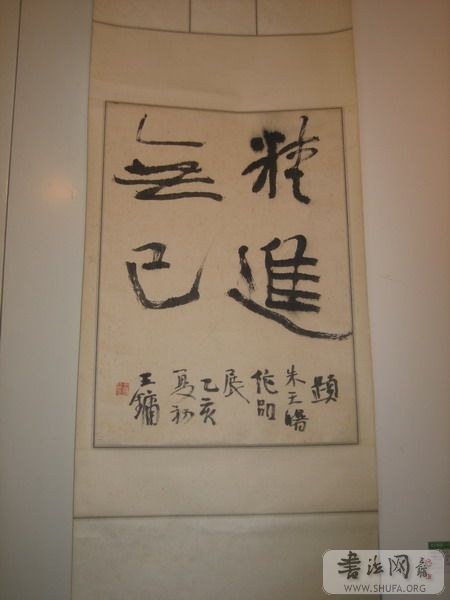 精進
無已
題
朱天曙
作品
展
乙亥
夏初
王鏞
書法网
WWW.SHUFA.ORG